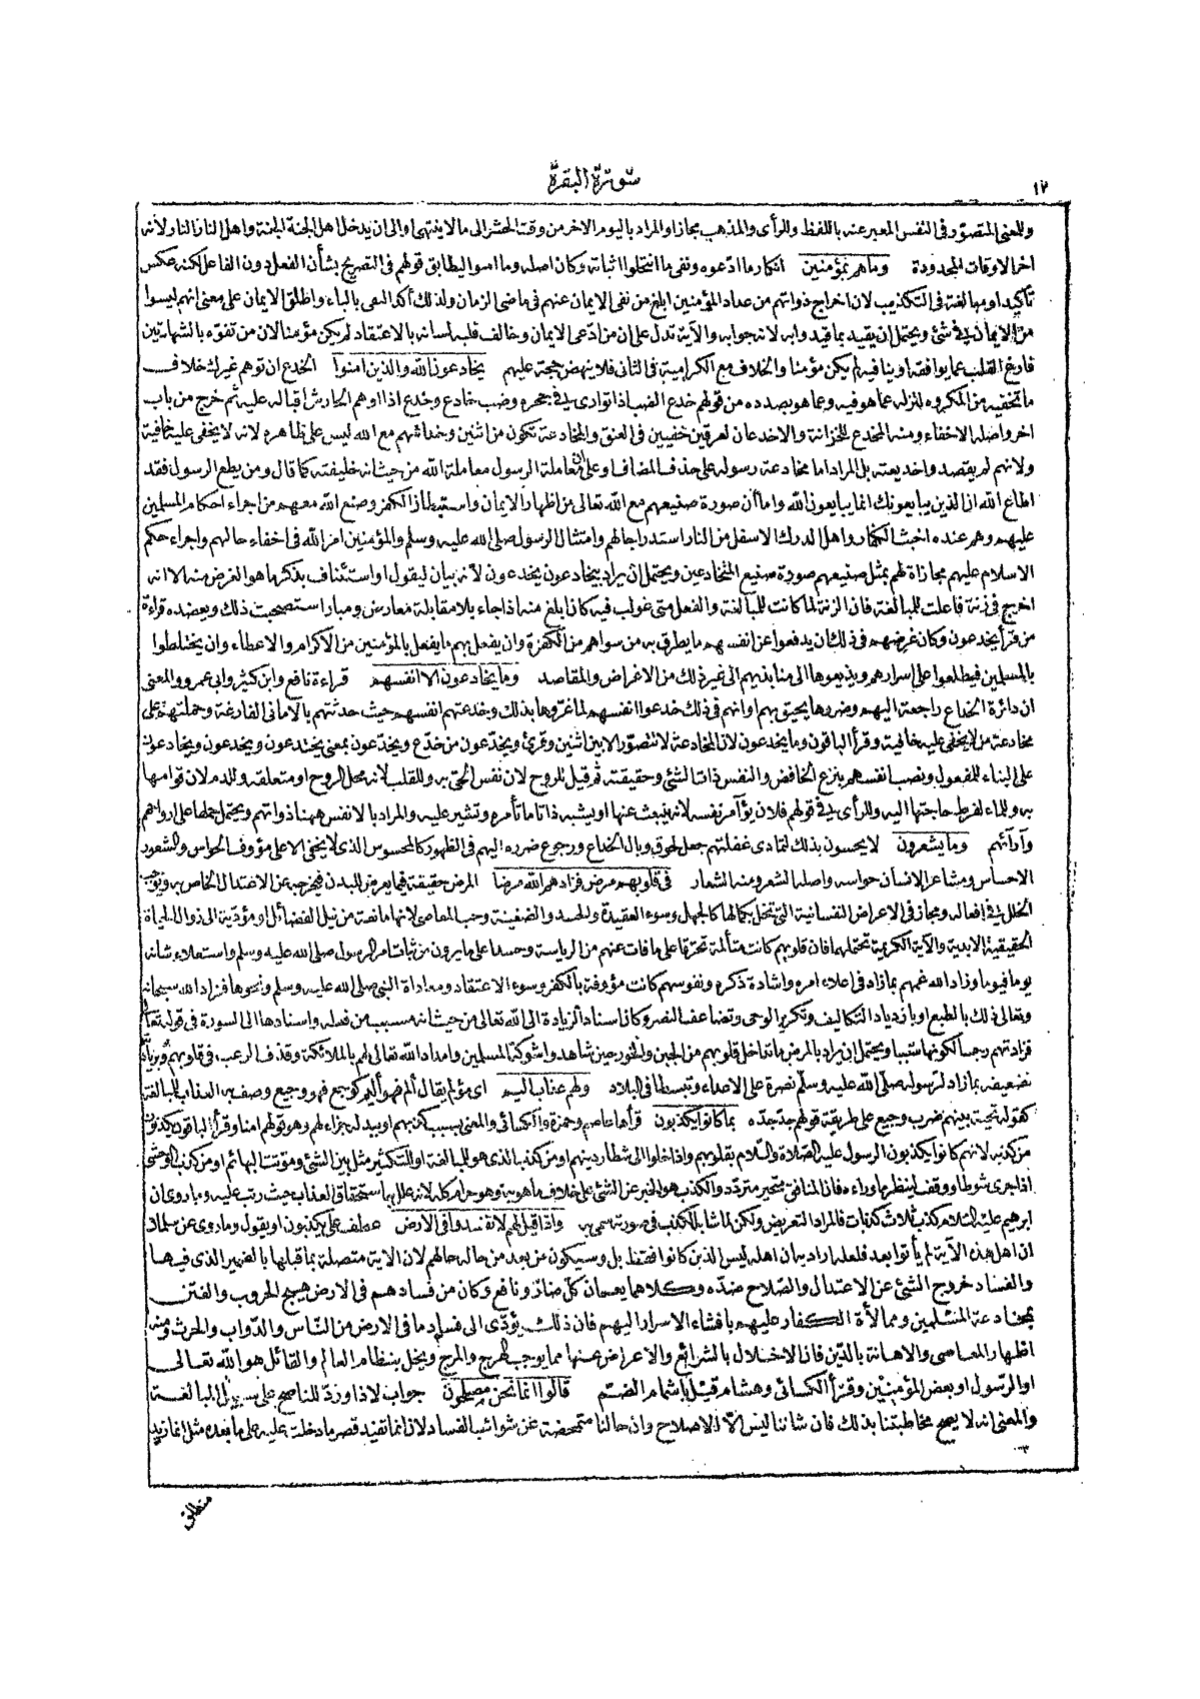 ١٢
سورة البقرة
وللمعنى المتصور في النفس المعبر عنه باللفظ وللرأى والمذهب مجازا والمراد باليوم الاخر من وقت الحشر الى ما لا ينتهى او الى ان يدخل اهل الجنة الجنة واهل النار النار لأنه
اخر الاوقات المحدودة وما هم بمؤمنين انكار ما ادعوه ونفى ما انتحلوا اثباته وكان اصله وما امنوا ليطابق قولهم في التصريح بشأن الفعل دون الفاعل لكنه عكس
تأكيدا ومبالغة في التكذيب لان اخراج ذواتهم من عداد المؤمنين ابلغ من نفى الايمان عنهم في ماضى الزمان ولذلك أكد النفى بالباء واطلق الايمان على معنى انهم ليسوا
من الايمان في شئ ويحتمل ان يقيد بما قيد وابه لانه جوابه والآية تدل على ان من ادعى الايمان وخالف قلبه لسانه بالاعتقاد لم يكن مؤمنا لان من تفوه بالشهادتين
فارغ القلب عما يوافقه او ينافيه لم يكن مؤمنا والخلاف مع الكرامية في الثانى فلا ينهض حجة عليهم يخادعون الله والذين امنوا الخدع ان توهم غيرك خلاف
ما تخفيه من المكروه لتنزله عما هو فيه وعما هو بصدده من قولهم خدع الضب اذا توارى في جحره وضب خادع وخدع اذا اوهم الحارش اقباله عليه ثم خرج من باب
اخر واصله الاخفاء ومنه المخدع للخزانة والاخدعان لعرقين خفيين في العنق والمخادعة تكون من اثنين وخداعهم مع الله ليس على ظاهره لانه لا يخفى عليه خافية
ولانهم لم يقصدوا خديعته بل المراد اما مخادعة رسوله على حذف المضاف او على ان معاملة الرسول معاملة الله من حيث انه خليفته كما قال ومن يطع الرسول فقد
اطاع الله ان الذين يبايعونك انما يبايعون الله واما أن صورة صنيعهم مع الله تعالى من اظهار الايمان واستبطان الكفر وصنع الله معهم من اجراء احكام المسلمين
عليهم وهم عنده اخبث الكفار واهل الدرك الاسفل من النار استدراجا لهم وامتثال الرسول صلى الله عليه وسلم والمؤمنين امر الله في اخفاء حالهم واجراء حكم
الاسلام عليهم مجازاة لهم بمثل صنيعهم صورة صنيع المتخادعين ويحتمل ان يراد بيخادعون يخدعون لأنه بيان ليقول او استئناف بذكر ما هو الغرض منه الا انه
اخرج في زنة فاعلت للمبالغة فان الزنة لما كانت للمبالغة والفعل متى غولب فيه كان ابلغ منه اذا جاء بلا مقابلة معارض ومبار استصحبت ذلك ويعضده قراءة
من قرأ يخدعون وكان غرضهم في ذلك ان يدفعوا عن انفسهم ما يطرق به من سواهم من الكفرة وان يفعل بهم ما يفعل بالمؤمنين من الاكرام والاعطاء وان يختلطوا
بالمسلمين فيطلعوا على اسرارهم ويذيعوها الى منابذيهم الى غير ذلك من الاغراض والمقاصد وما يخادعون الا انفسهم قراءة نافع وابن كثير وابى عمرو والمعنى
ان دائرة الخداع راجعة اليهم وضررها يحيق بهم او انهم في ذلك خدعوا انفسهم لما غروها بذلك وخدعتهم انفسهم حيث حدثتهم بالآمانى الفارغة وحملتهم على
مخادعة من لا يخفى عليه خافية وقرأ الباقون وما يخدعون لان المخادعة لا تتصور الا بين اثنين وقرئ ويخدعون من خدع ويخدعون بمعنى يختدعون ويخدعون ويخادعون
على البناء للمفعول ونصب انفسهم بنزع الخافض والنفس ذات الشئ وحقيقته ثم قيل للروح لان نفس الحى به وللقلب لانه محل الروح او متعلقه وللدم لان قوامها
به وللماء لفرط حاجتها اليه وللرأى في قولهم فلان يؤامر نفسه لانه ينبعث عنها او يشبه ذاتا ما تأمره وتشير عليه والمراد بالانفس ههنا ذواتهم ويحتمل حملها على ارواحهم
وآرائهم وما يشعرون لا يحسون بذلك لتمادى غفلتهم جعل لحوق وبال الخداع ورجوع ضرره اليهم في الظهور كالمحسوس الذى لا يخفى الا على مؤوف الحواس والشعور
الاحساس ومشاعر الانسان حواسه واصله الشعر ومنه الشعار في قلوبهم مرض فزادهم الله مرضا المرض حقيقة فيما يعرض للبدن فيخرجه عن الاعتدال الخاص به ويوجب
الخلل في افعاله ومجاز في الاعراض النفسانية التى تخل بكمالها كالجهل وسوء العقيدة والحسد والضغينة وحب المعاصى لانها مانعة من نيل الفضائل او مؤدية الى زوال الحياة
الحقيقية الابدية والآية الكريمة تحتملهما فان قلوبهم كانت متألمة تحرقا على ما فات عنهم من الرياسة وحسدا على ما يرون من ثبات امر الرسول صلى الله عليه وسلم واستعلاء شانه
يوما فيوما وزاد الله غمهم بما زاد في اعلاء امره واشادة ذكره ونفوسهم كانت مؤوفة بالكفر وسوء الاعتقاد ومعاداة النبى صلى الله عليه وسلم ونحوها فزاد الله سبحانه
وتعالى ذلك بالطبع او بازدياد التكاليف وتكرير الوحى وتضاعف النصر وكان اسناد الزيادة الى الله تعالى من حيث انه مسبب من فعله واسنادها الى السورة في قوله تعالى
فزادتهم رجسا لكونها سببا ويحتمل ان يراد بالمرض ما تداخل قلوبهم من الجبن والخور حين شاهدوا شوكة المسلمين وامداد الله تعالى لهم بالملائكة وقذف الرعب في قلوبهم وبزيادته
تضعيفه بما زاد لرسوله صلى الله عليه وسلم نصرة على الاعداء وتبسطا في البلاد ولهم عذاب اليم اى مؤلم يقال ألم فهو أليم كوجع فهو وجيع وصف به العذاب للمبالغة
كقوله تحية بينهم ضرب وجيع على طريقة قولهم جد جده بما كانوا يكذبون قرأها عاصم وحمزة والكسائى والمعنى بسبب كذبهم او ببدله جزاء لهم وهو قولهم امنا وقرأ الباقون يكذبون
من كذبه لانهم كانوا يكذبون الرسول عليه الصلاة والسلام بقلوبهم واذا خلوا الى شطار دينهم او من كذب الذى هو للمبالغة او للتكثير مثل بين الشئ وموتت البهائم او من كذب الوحشى
اذا جرى شوطا ووقف لينظر ما وراءه فان المنافق متحير متردد والكذب هو الخبر عن الشئ على خلاف ما هو به وهو حرام كله لانه علل به استحقاق العذاب حيث رتب عليه وما روى ان
ابرهيم عليه السلام كذب ثلاث كذبات فالمراد التعريض ولكن لما شابه الكذب في صورته سمى به واذا قيل لهم لا تفسدوا في الارض عطف على يكذبون او يقول وما روى عن سلمان
ان اهل هذه الآية لم يأتوا بعد فلعله اراد به ان اهله ليس الذين كانوا فقط بل وسيكون من بعد من حاله حالهم لان الاية متصلة بما قبلها بالضمير الذى فيها
والفساد خروج الشئ عن الاعتدال والصلاح ضده وكلاهما يعمان كل ضار ونافع وكان من فسادهم في الارض هيج الحروب والفتن
بمخادعة المسلمين وممالأة الكفار عليهم بافشاء الاسرار اليهم فان ذلك يؤدى الى فساد ما في الارض من الناس والدواب والحرث ومنه
اظهار المعاصى والاهانة بالدين فان الاخلال بالشرائع والاعراض عنها مما يوجب الهرج والمرج ويخل بنظام العالم والقائل هو الله تعالى
او الرسول او بعض المؤمنين وقرأ الكسائى وهشام قيل بإشمام الضم قالوا انما نحن مصلحون جواب لاذا ورد للناصح على سبيل المبالغة
والمعنى انه لا يصح مخاطبتنا بذلك فان شاننا ليس الا الاصلاح وان حالنا متمحضة عن شوائب الفساد لان انما تفيد قصر ما دخلت عليه على ما بعده مثل انما زيد
٣
منطلق